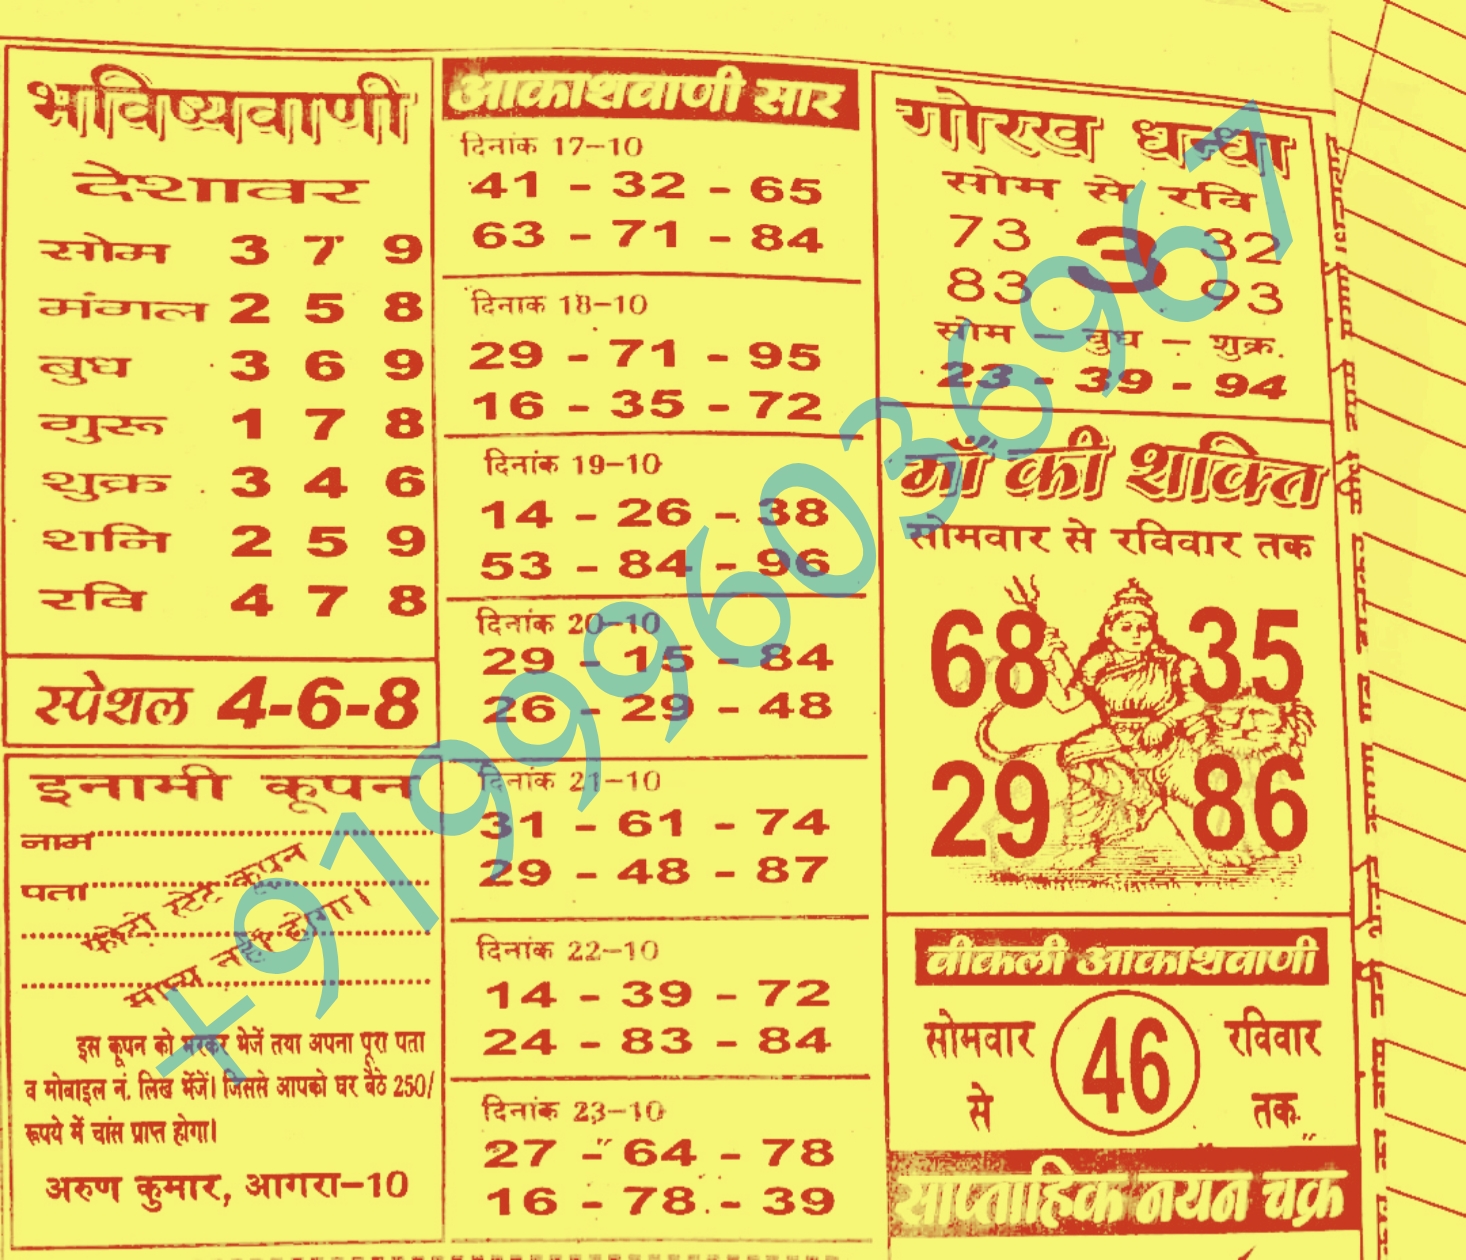 भविष्यवाणी
देशावर
सोम 3 7 9
मंगल 2 5 8
बुध 3 6 9
गुरू 1 7 8
शुक्र 3 4 6
शनि 2 5 9
रवि 4 7 8
स्पेशल 4-6-8
इनामी कूपन
नाम
पता
फोटो स्टेट कूपन
मान्य नहीं होगा।
इस कूपन को भरकर भेजें तथा अपना पूरा पता
व मोबाइल नं. लिख भेंजें। जिससे आपको घर बैठे 250/
रूपये में चांस प्राप्त होगा।
अरुण कुमार, आगरा-10
आकाशवाणी सार
दिनांक 17-10
41 - 32 - 65
63 - 71 - 84
दिनांक 18-10
29 - 71 - 95
16 - 35 - 72
दिनांक 19-10
14 - 26 - 38
53 - 84 - 96
दिनांक 20-10
29 - 15 - 84
26 - 29 - 48
दिनांक 21-10
31 - 61 - 74
29 - 48 - 87
दिनांक 22-10
14 - 39 - 72
24 - 83 - 84
दिनांक 23-10
27 - 64 - 78
16 - 78 - 39
गोरख धन्धा
सोम से रवि
73 3 32
83 93
सोम - बुध - शुक्र
23 - 39 - 94
माँ की शक्ति
सोमवार से रविवार तक
68 35
29 86
वीकली आकाशवाणी
सोमवार 46 रविवार
से तक
साप्ताहिक नयन चक्र
+919996036967